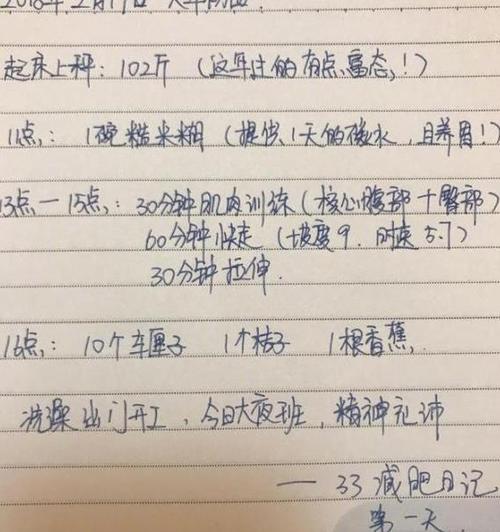 起床上秤：102斤（这年过的有点富态！）
11点：1碗糙米糊（提供1天的碳水，且养胃！）
13点一15点：30分钟肌肉训练（核心腹部+臀部）
60分钟快走（坡度9.时速5.7）
30分钟拉伸.
16点：10个车厘子 1个桔子 1根香蕉.
洗澡出门开工、今日大夜班，精神充沛
— 33减肥日记
第一天